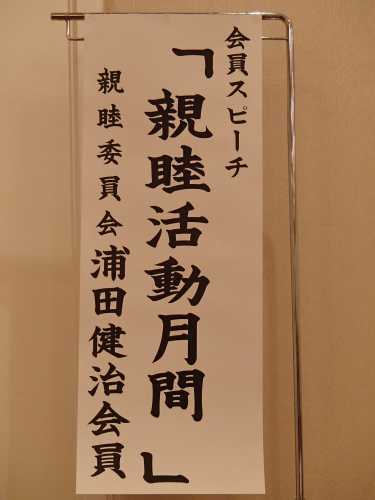 会員スピーチ
「親睦活動月間」
親睦委員会 浦田健治会員